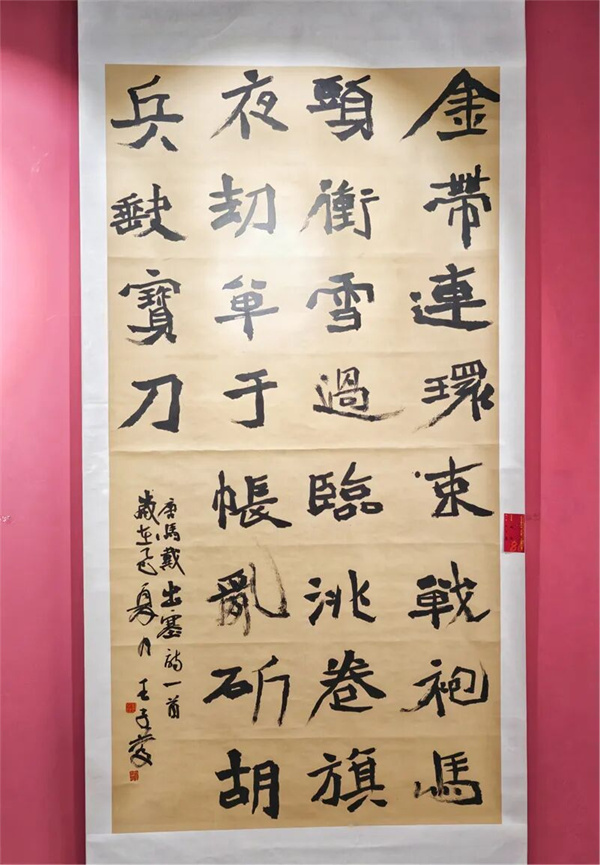 金帶連環束戰袍馬
頭衝雪過臨洮卷旗
夜刧单于帳亂斫胡
兵缺寶刀
唐馬戴出塞詩一首
歲在夏月王